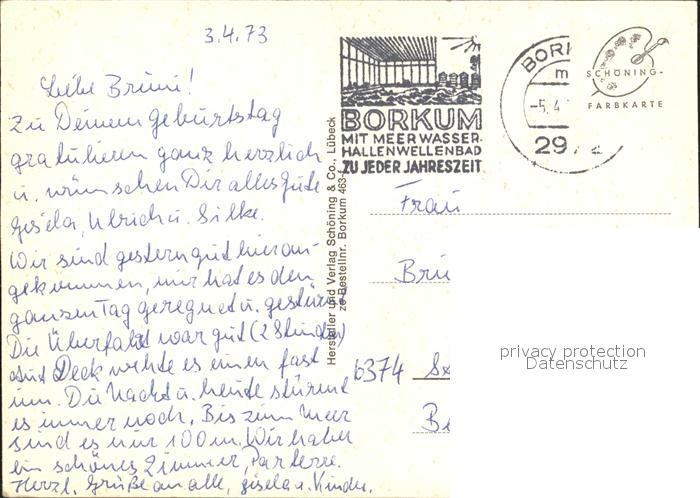 3.4.73
Liebe Brüni!
Zu Deinem Geburtstag
gratulieren ganz herzlich
u. wünschen Dir alles Gute
Gisela, Ulrich u. Silke.
Wir sind gestern gut hier an-
gekommen, nur hat es den
ganzen Tag geregnet u. gestürmt
Die Überfahrt war gut (2 Stunden)
Auf Deck wehte es einen fast
um. Die Nacht u. heute stürmt
es immer noch. Bis zum Meer
sind es nur 100 m. Wir haben
ein schönes Zimmer, Parterre.
Herzl. Grüße an alle, Gisela u. Kinder.
Hersteller und Verlag Schöning & Co., Lübeck
zu Bestellnr. Borkum 463-f
BORKUM
MIT MEERWASSER-
HALLENWELLENBAD
ZU JEDER JAHRESZEIT
BORK
m
-5.4.
2972
SCHÖNING-
FARBKARTE
Frau
Brü
6374
Be
privacy protection
Datenschutz